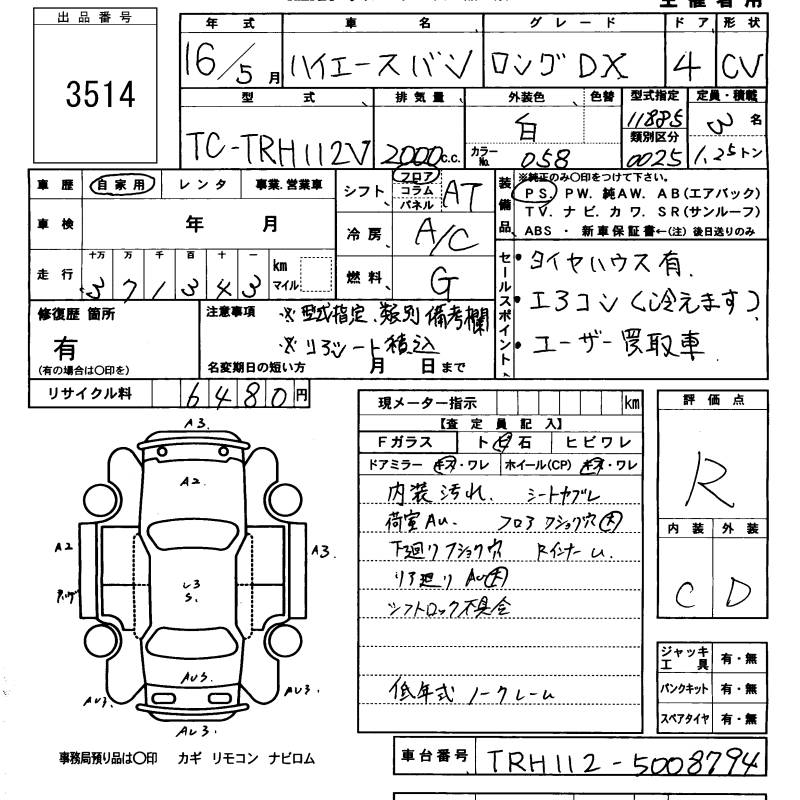 出品番号
3514
年式 車名 グレード ドア 形状
16/5月 ハイエースバン ロングDX 4 CV
型式 排気量 外装色 色替 型式指定 定員・積載
TC-TRH112V 2000c.c. 白 11885 3名
カラーNo. 058 類別区分 0025 1.25トン
車歴 自家用 レンタ 事業.営業車
シフト フロア コラム パネル AT
装備品 ※純正のみ○印をつけて下さい。
PS. PW. 純AW. AB(エアバック)
TV. ナビ. カワ. SR(サンルーフ)
ABS ・ 新車保証書←(注) 後日送りのみ
車検 年 月
冷房 A/C
走行 十万 万 千 百 十 一 km マイル
3 7 1 3 4 3
燃料 G
セールスポイント
・タイヤハウス有.
・エアコン(冷えます)
・ユーザー買取車
修復歴 箇所
有
(有の場合は○印を)
注意事項 ※型式指定、類別備考欄
※リアシート積込
名変期日の短い方 月 日まで
リサイクル料 6480円
現メーター指示 km
【査定員記入】
Fガラス ト日石 ヒビワレ
ドアミラー キズ・ワレ ホイール(CP) キズ・ワレ
内装汚れ. シートヤブレ
荷室AU. フロアフショク穴大
下廻りフショク穴 RインナーU.
リア廻りAU大
シフトロック不具合
低年式ノークレーム
評価点
R
内装 外装
C D
A3.
A2.
A2
A3.
L3
S.
AU3.
AU3.
AU3.
AU3.
ジャッキ工具 有・無
パンクキット 有・無
スペアタイヤ 有・無
事務局預り品は○印 カギ リモコン ナビロム
車台番号 TRH112-5008794